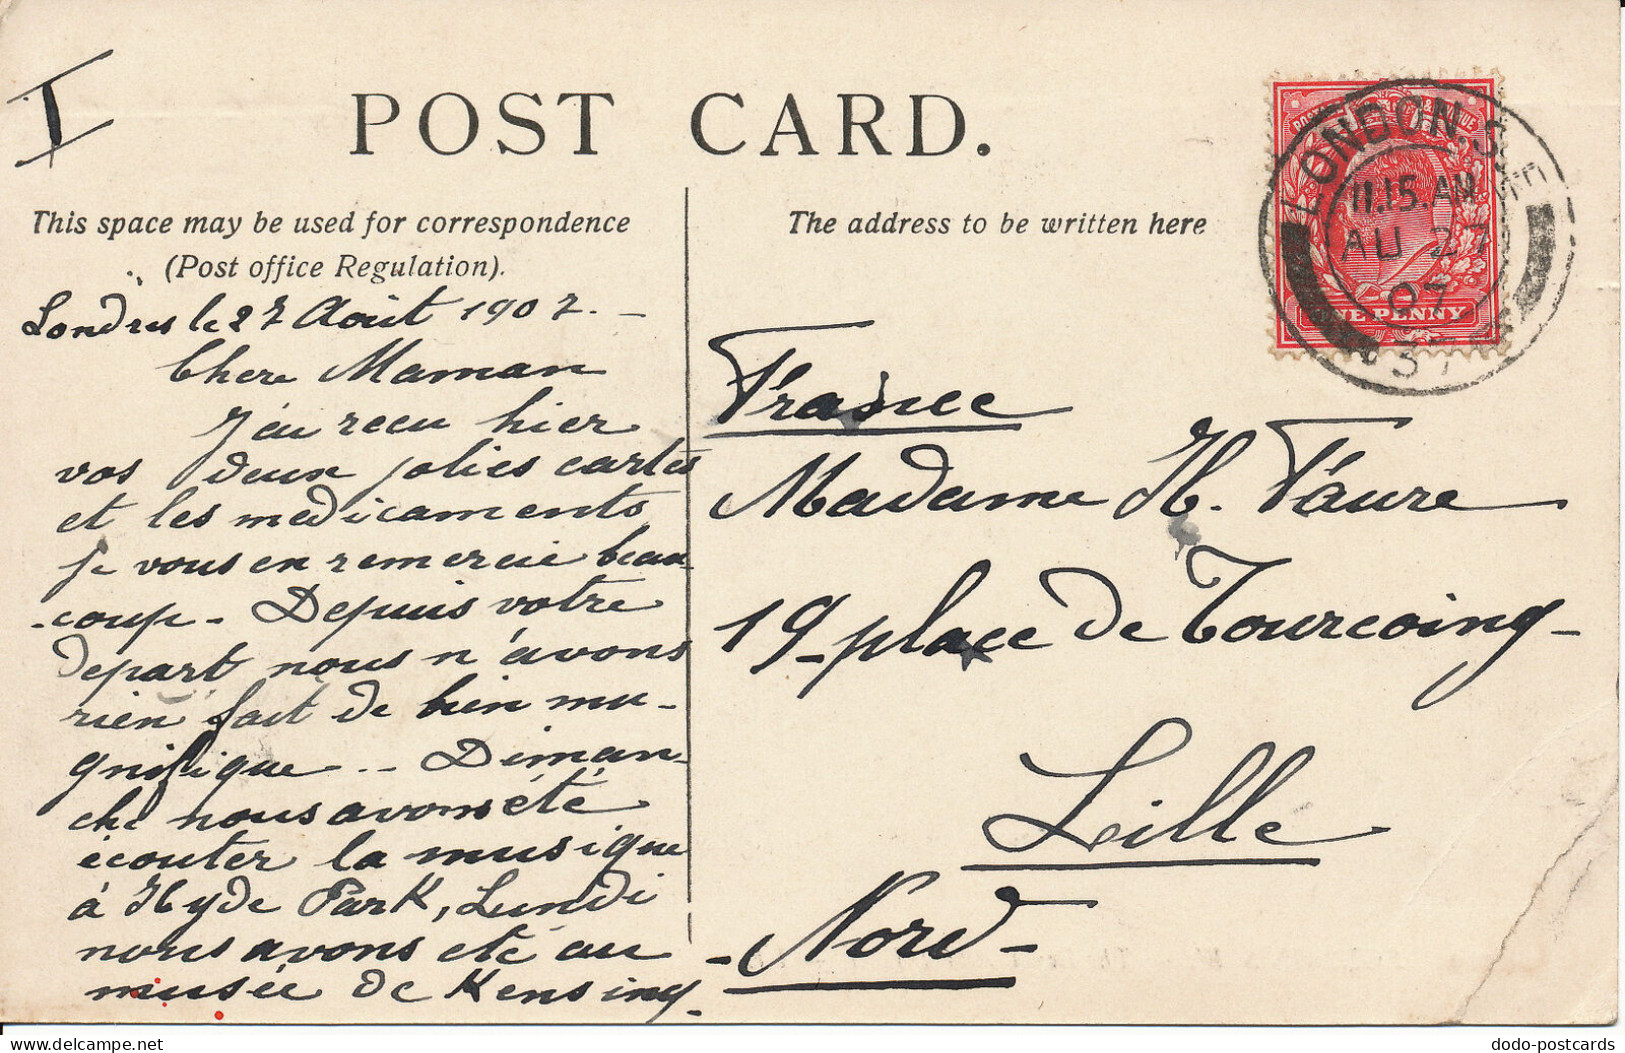 I
POST CARD.
This space may be used for correspondence
(Post office Regulation).
Londres le 27 Août 1907. -
Chere Maman
J'ai recu hier
vos deux jolies cartes
et les medicaments
je vous en remercie beau-
-coup - Depuis votre
depart nous n'avons
rien fait de bien ma-
gnifique -- Diman-
che nous avons été
écouter la musique
à Hyde Park, Lundi
nous avons eté au
musée de Kensing-
The address to be written here
LONDON. S
11.15. AM
AU 27
07
37
ONE PENNY
France
Madame H. Faure
19 - place de Tourcoing -
Lille
- Nord -
dodo-postcards